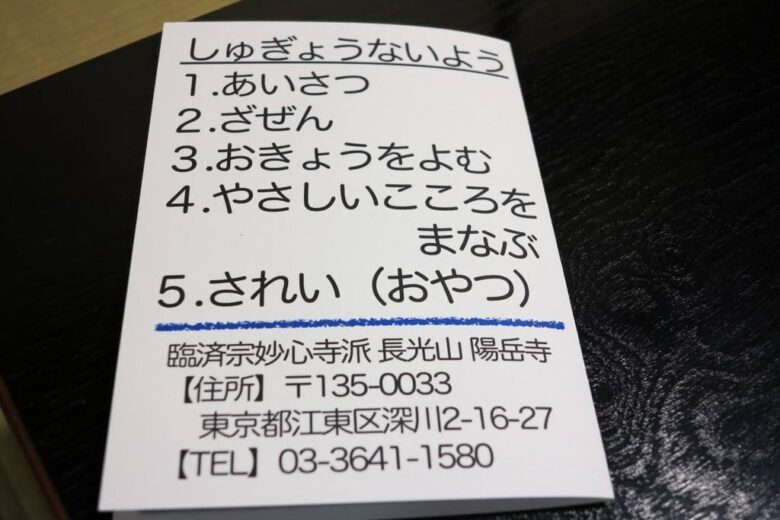 しゅぎょうないよう
1.あいさつ
2.ざぜん
3.おきょうをよむ
4.やさしいこころを
まなぶ
5.されい（おやつ）
臨済宗妙心寺派 長光山 陽岳寺
【住所】〒135-0033
東京都江東区深川2-16-27
【TEL】03-3641-1580